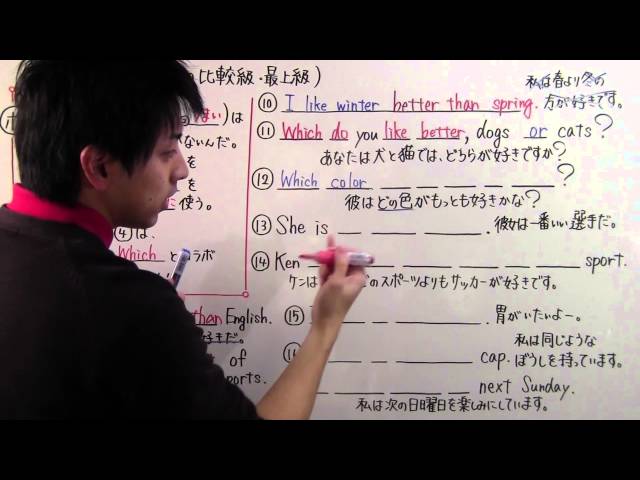 比較級・最上級)
私は春より冬の
方が好きです。
⑩ I like winter better than spring.
は
ないんだ。
を
を
に使う。
④は、
Which とコラボ
⑪ Which do you like better, dogs or cats?
あなたは犬と猫では、どちらが好きですか?
⑫ Which color _ _ _ _ _ ?
彼はどの色がもっとも好きかな?
⑬ She is _ _ _ _ . 彼女は一番いい選手だ。
⑭ Ken _ _ _ _ _ _ _ sport.
ケンは のスポーツよりもサッカーが好きです。
than English.
好きだ。
of
sports.
⑮ _ _ _ _ . 胃がいたいよー。
私は同じような
_ _ _ _ cap. ぼうしを持っています。
_ _ _ _ next Sunday.
私は次の日曜日を楽しみにしています。